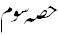 حصہ سوم